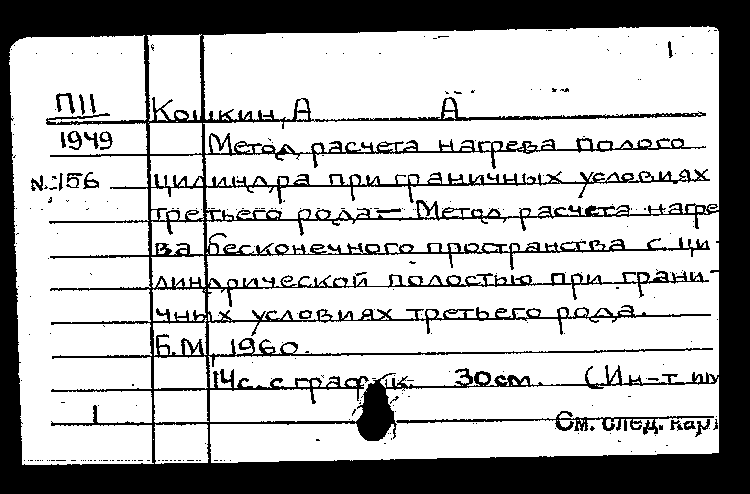 1
П11 Кошкин, А А
1949 Метод расчета нагрева полого
N:156 цилиндра при граничных условиях
третьего рода — Метод расчета нагре
ва бесконечного пространства с ци-
линдрической полостью при грани-
чных условиях третьего рода.
Б.М., 1960.
14с. с график. 30см. (Ин-т им
1 См. след. карт